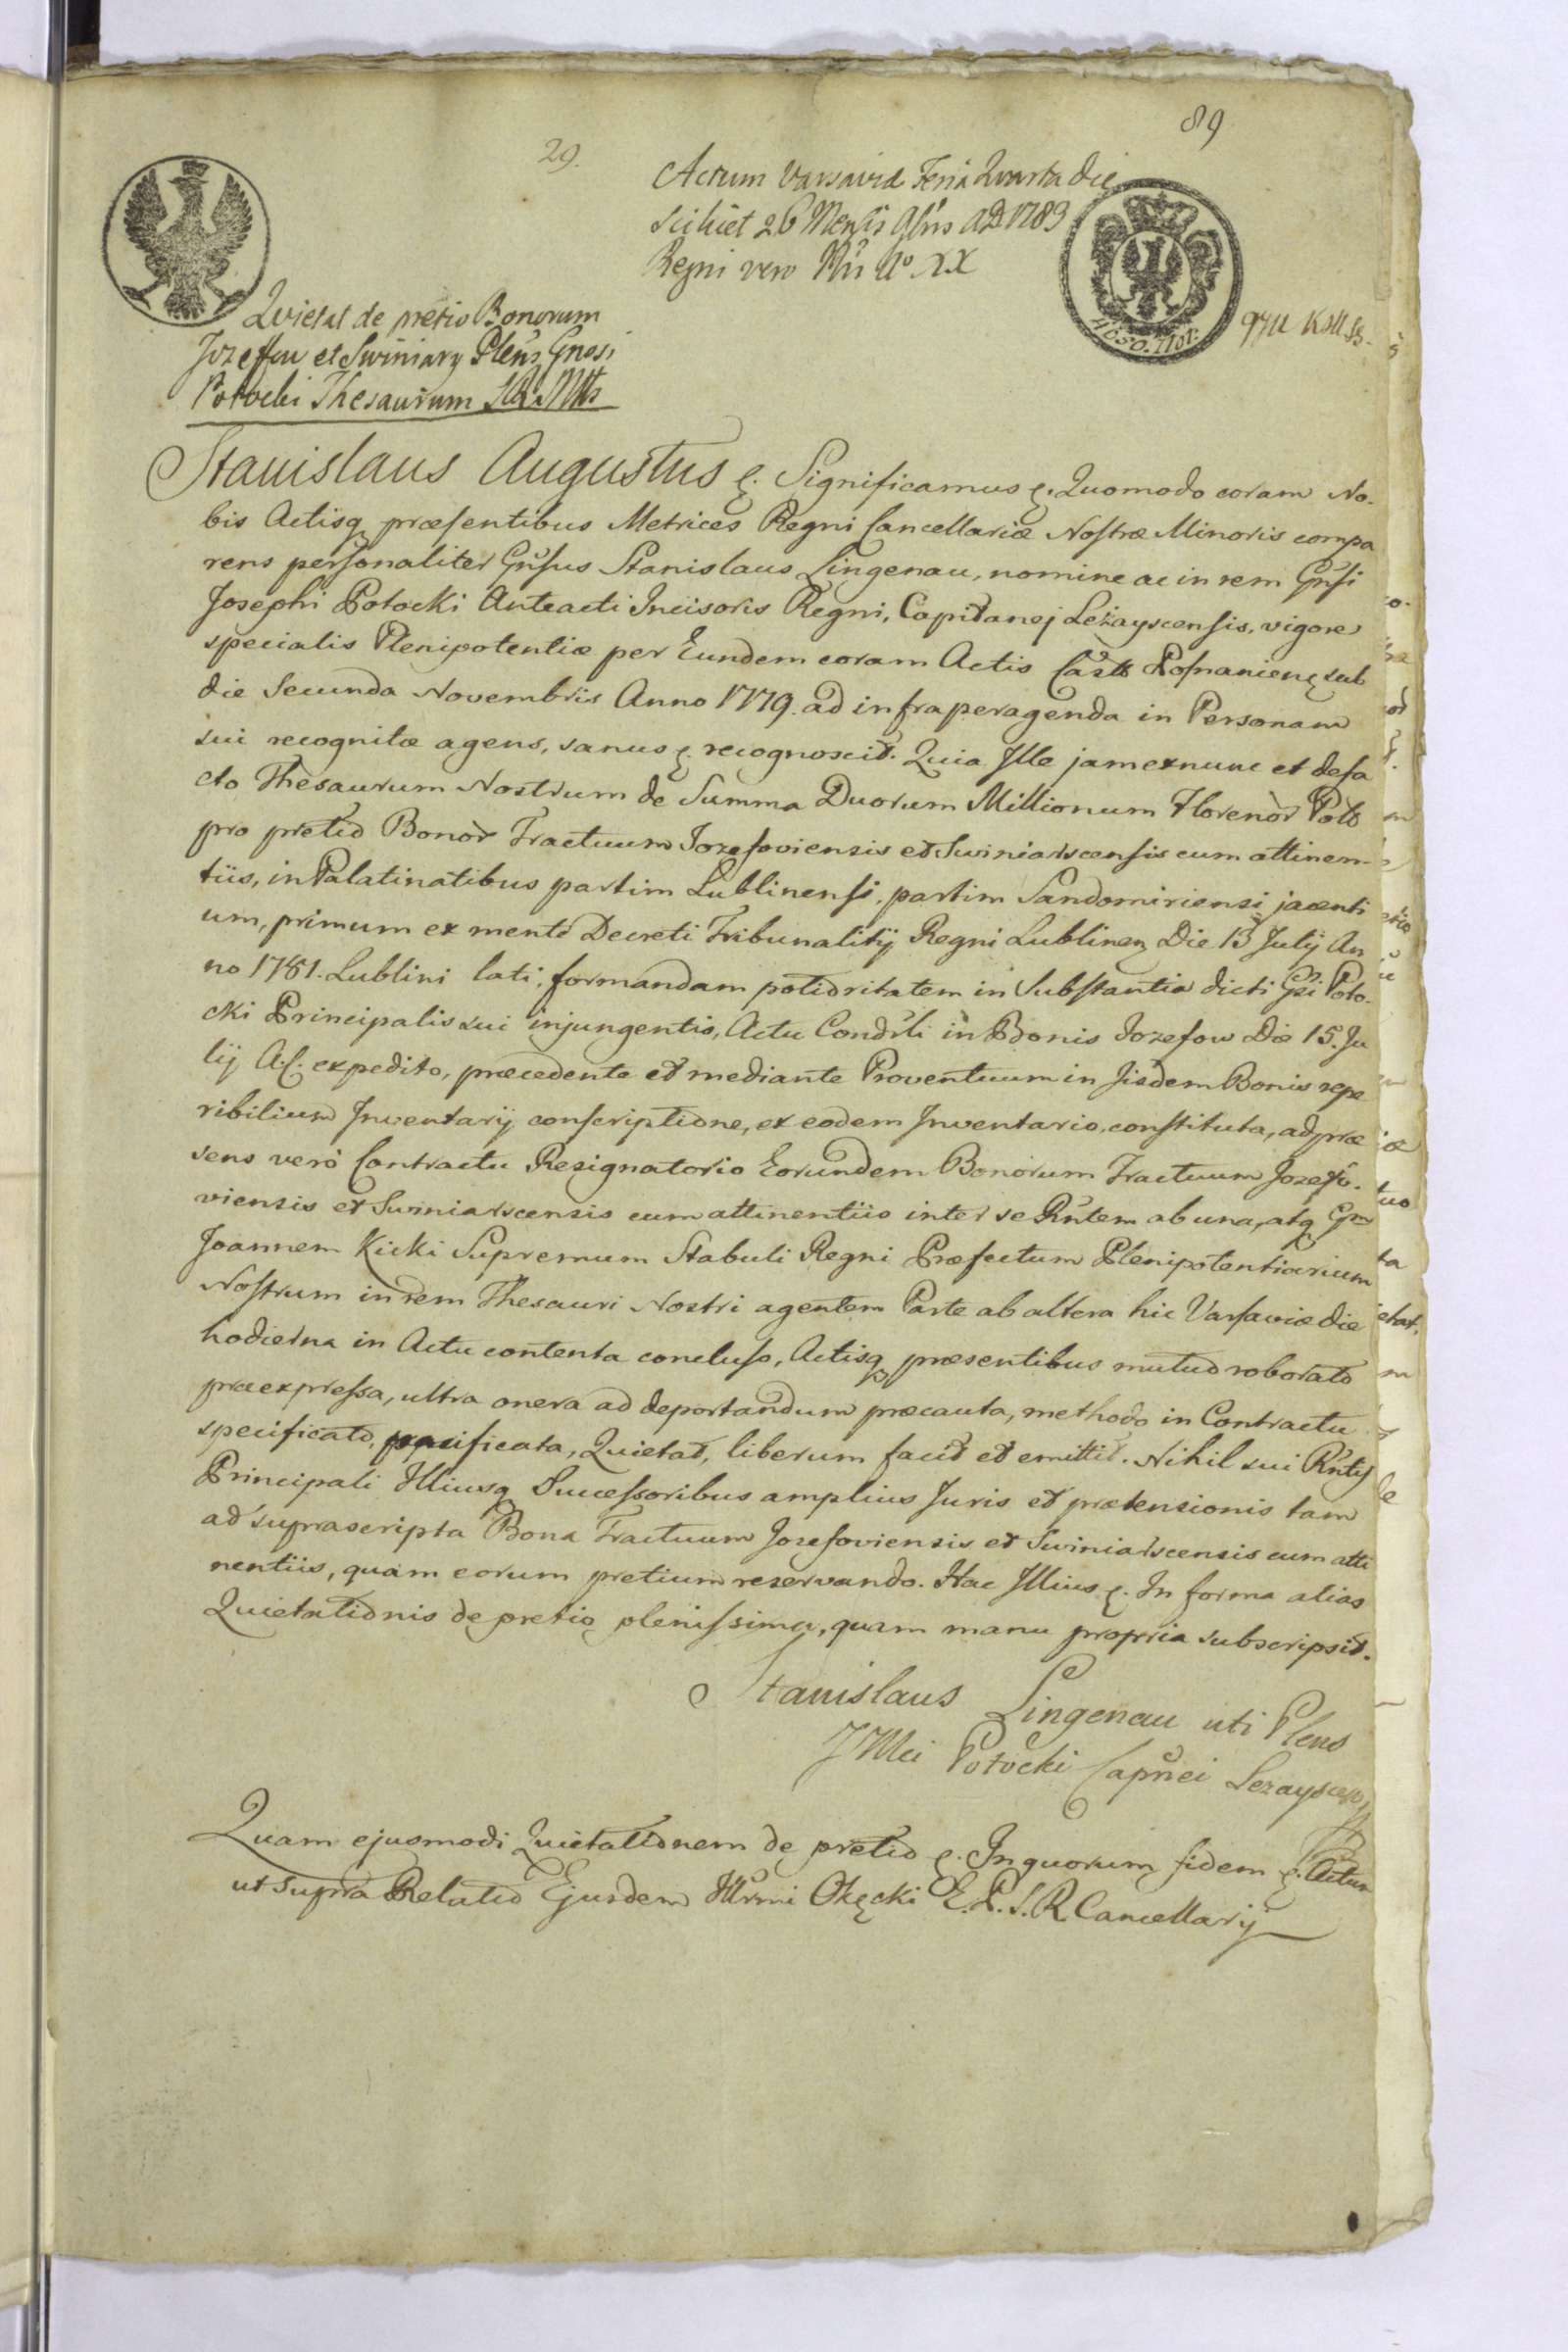 89
29.
Actum Varsaviæ Feria Quarta die
scilicet 26 Mensis 9bris AD 1783
Regni vero Nri Ao XX
Quietat de pretio Bonorum
Jozeffow et Swiniary Plens Gnosi
Potocki Thesaurum
4 gr. o. Zlot.
Stanislaus Augustus &. Significamus &. Quomodo coram No-
bis Actisq præsentibus Metrices Regni Cancellariæ Nostræ Minoris compa
rens personaliter Gnsus Stanislaus Lingenau, nomine ac in rem Gnsi
Josephi Potocki Anteacti Incisoris Regni, Capitanej Leżayscensis, vigore
specialis Plenipotentiæ per Eundem coram Actis Castr Posnanien, sub
die Secunda Novembris Anno 1779. ad infraperagenda in Personam
sui recognitæ agens, sanus &. recognoscit. Quia Ille jam exnunc et defa
cto Thesaurum Nostrum de Summa Duorum Millionum Florenor Polo
pro pretio Bonor Tractuum Jozefoviensis et Swiniarscensis cum attinen-
tiis, in Palatinatibus partim Lublinensi, partim Sandomiriensi jacenti
um, primum ex mente Decreti Tribunalitij Regni Lublinen Die 13 Julij An
no 1781. Lublini lati, formandam potioritatem in Substantia dicti Gsi Poto-
cki Principalis sui injungentis, Actu Condsti in Bonis Jozefow Die 15. Ju
lij A.C. expedito, præcedente et mediante Proventuum in Jisdem Bonis repe
ribilium Inventarij conscriptione, ex eodem Inventario, constituta, ad præ
sens verò Contractu Resignatorio Eorundem Bonorum Tractuum Jozefo-
viensis et Swiniarscensis cum attinentiis inter se Rntem ab una, atq Gm
Joannem Kicki Supremum Stabuli Regni Præfectum Plenipotentiarium
Nostrum in rem Thesauri Nostri agentem Parte ab altera hic Varsaviæ die
hodierna in Actu contenta concluso, Actisq præsentibus mutuo roborato
præexpressa, ultra onera ad deportandum præcauta, methodo in Contractu
specificato, pacificata, Quietat, liberum facit et emittit. Nihil sui Rntis
Principali Illiusq Successoribus amplius Juris et prætensionis tam
ad suprascripta Bona Tractuum Jozefoviensis et Swiniarscensis cum atti
nentiis, quam eorum pretium reservando. Hac Illius &. In forma alias
Quietationis de pretio plenissima, quam manu propria subscripsit.
Stanislaus Lingenau uti Plens
JMci Potocki Capnei Lezayscen,
Quam ejusmodi Quietationem de pretio &. In quorum fidem &. Actum
ut supra Relatio Ejusdem Illrmi Okęcki E.P.S.R. Cancellarij